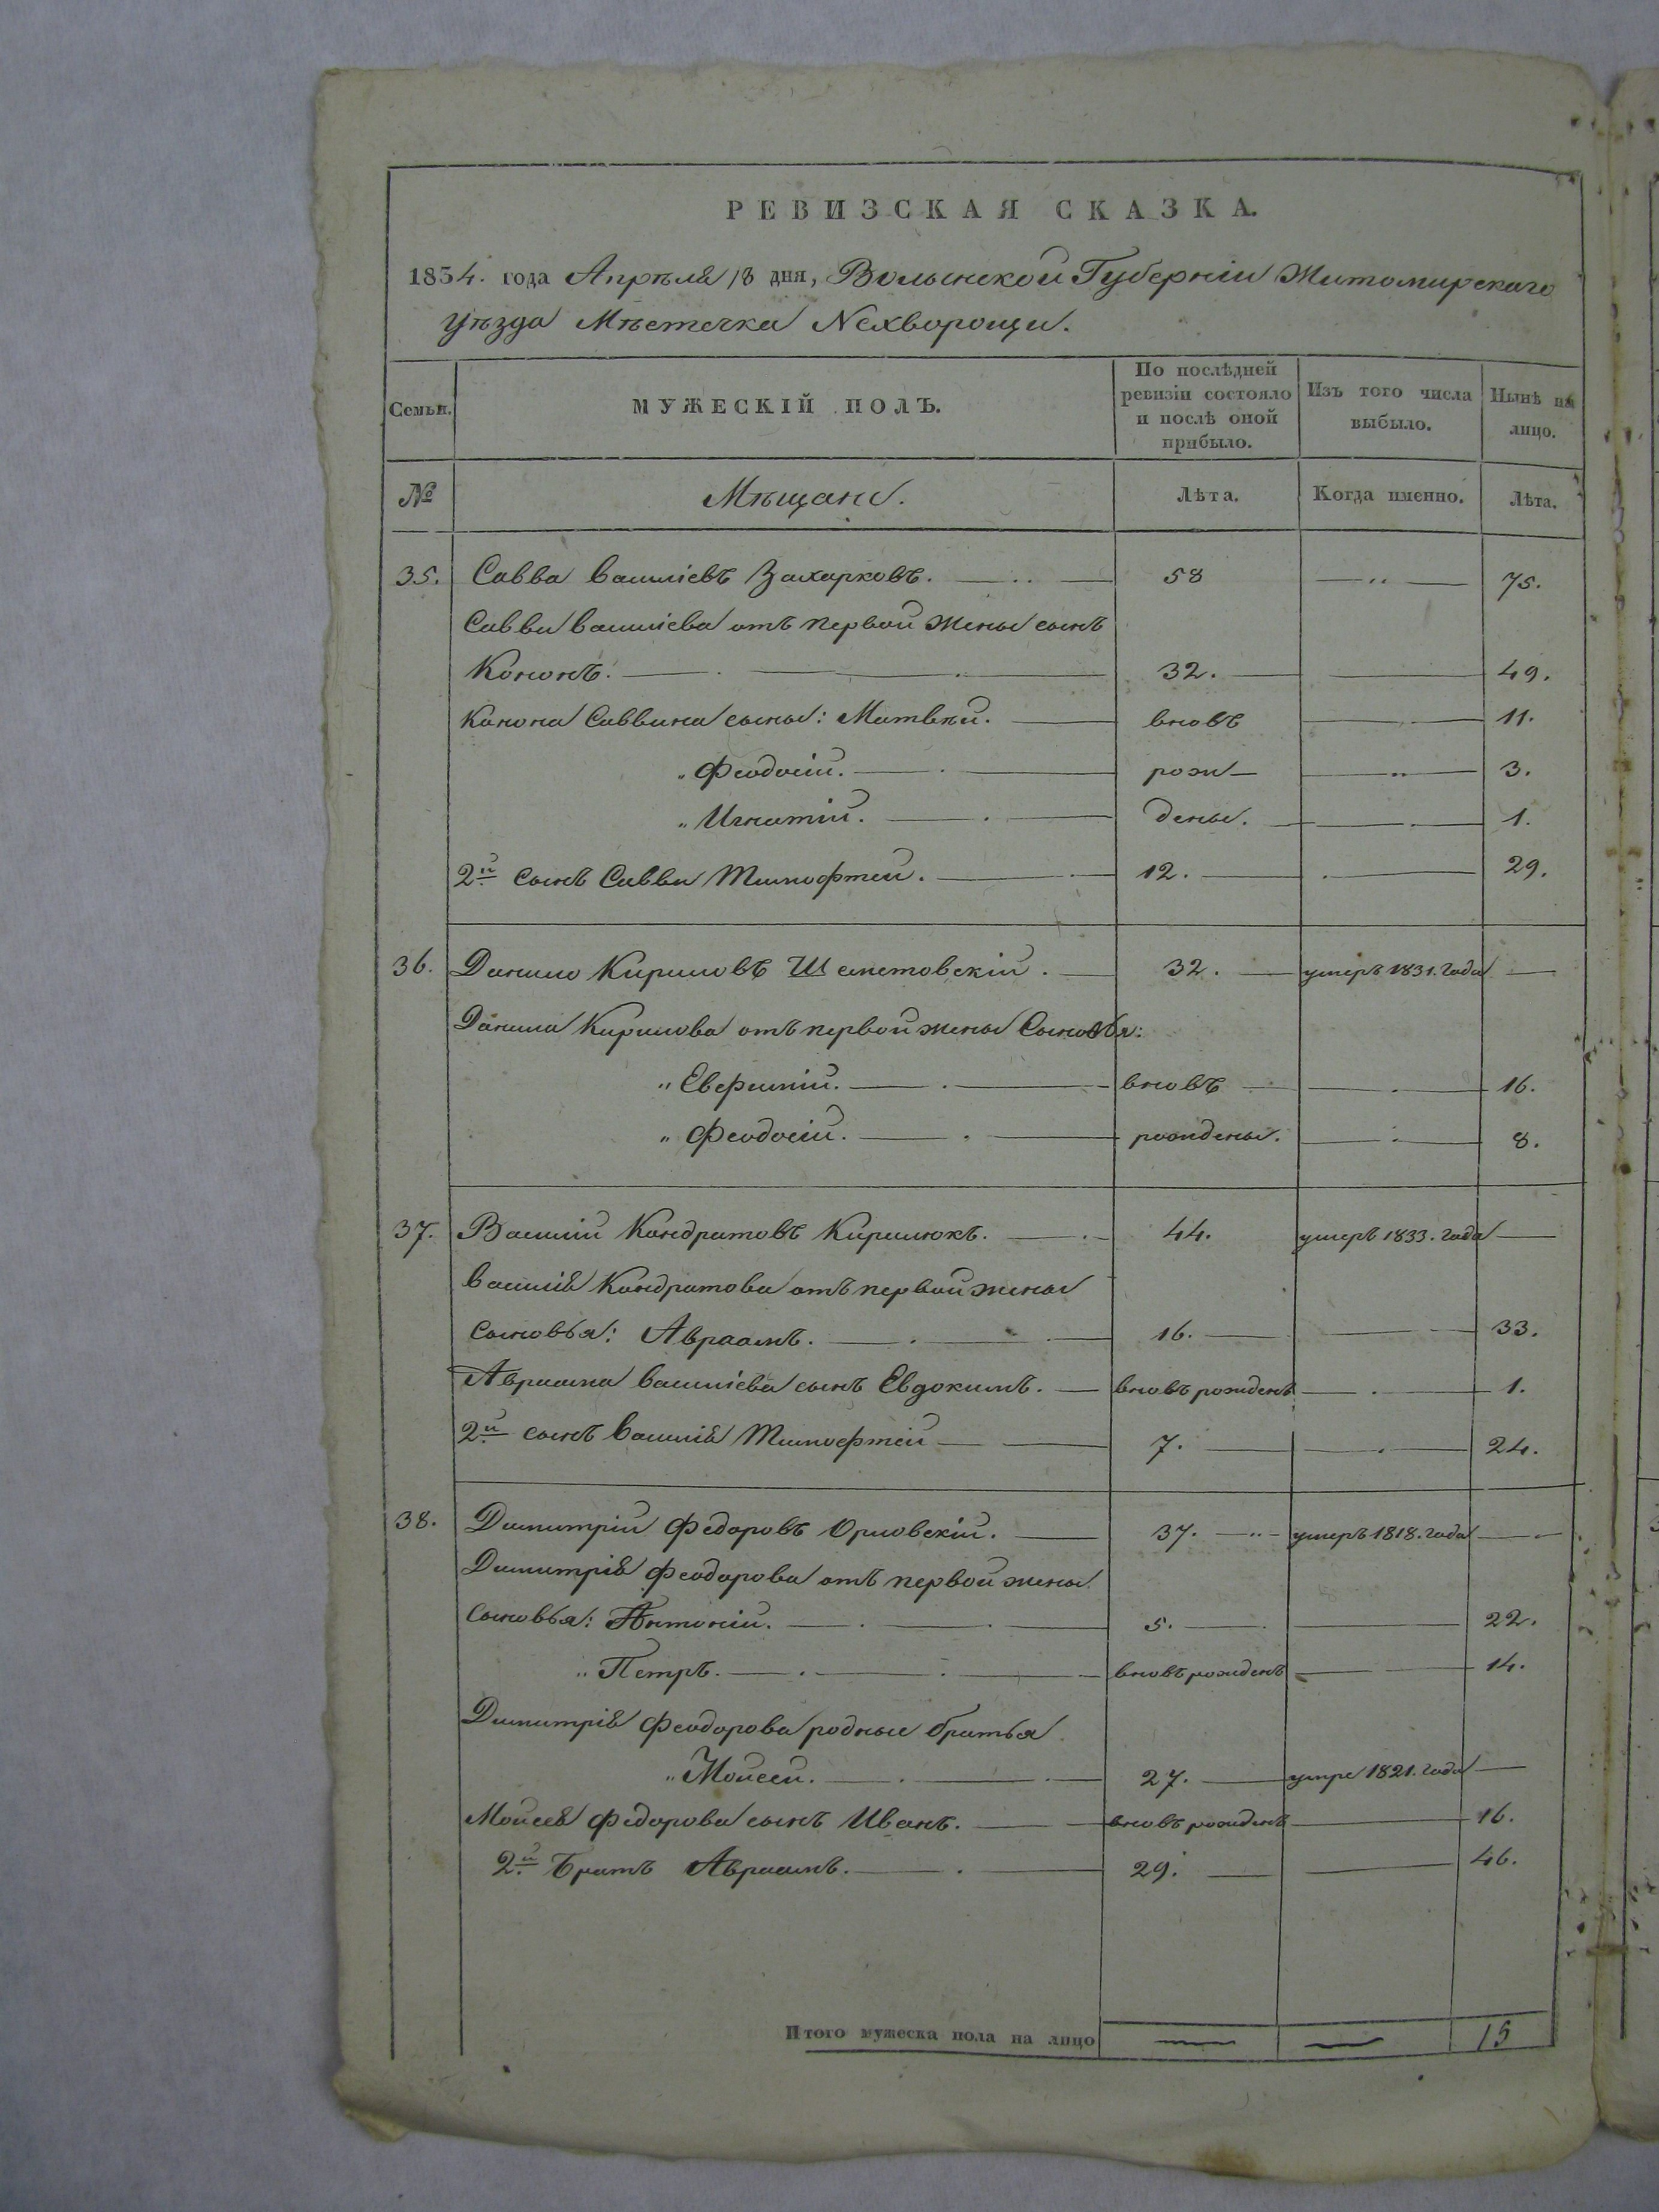 РЕВИЗСКАЯ СКАЗКА.
1834. года Апрѣля 18 дня, Волынской Губерніи Житомирскаго
уѣзда Мѣстечка Нехворощи.
Семьи. МУЖЕСКІЙ ПОЛЪ. По послѣдней ревизіи состояло и послѣ оной прибыло. Изъ того числа выбыло. Нынѣ на лицо.
№ Мѣщане. Лѣта. Когда именно. Лѣта.
35. Савва Василіевъ Захарковъ. 58 75.
Саввы Василіева отъ первой жены сынъ
Кононъ. 32. 49.
Конона Саввина сыны: Матвѣй. вновь 11.
„ Феодосій. рож- 3.
„ Игнатій. дены. 1.
2й сынъ Саввы Тимофтей. 12. 29.
36. Данило Кириловъ Шепетовскій. 32. умеръ 1831. года
Данила Кирилова отъ первой жены Сыновья:
„ Евфимій. вновь 16.
„ Феодосій. рождены. 8.
37. Василій Кондратовъ Кирилюкъ. 44. умеръ 1833. года
Василія Кондратова отъ первой жены
сыновья: Авраамъ. 16. 33.
Авраама Василіева сынъ Евдокимъ. вновь рожденъ 1.
2й сынъ Василія Тимофтей 7. 24.
38. Димитрій Федоровъ Орловскій. 37. умеръ 1818. года
Димитрія Феодорова отъ первой жены
сыновья: Антоній. 5. 22.
„ Петръ. вновь рожденъ 14.
Димитрія Феодорова родные братья
„ Моисей. 27. умре 1821. года
Моисея Федорова сынъ Иванъ. вновь рожденъ 16.
2й Братъ Авраамъ. 29. 46.
Итого мужеска пола на лицо 15